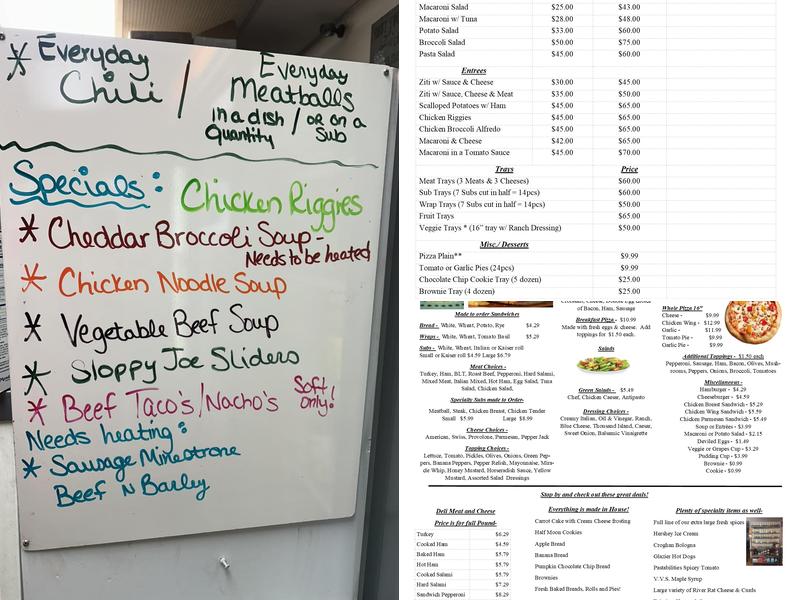 * Everyday Chili / Everyday Meatballs
in a dish / or on a
Quantity Sub
Specials: Chicken Riggies
* Cheddar Broccoli Soup -
Needs to be heated
* Chicken Noodle Soup
* Vegetable Beef Soup
* Sloppy Joe Sliders
* Beef Taco's/Nacho's Soft only!
Needs heating:
* Sausage Minestrone
Beef N Barley
Macaroni Salad $25.00 $43.00
Macaroni w/ Tuna $28.00 $48.00
Potato Salad $33.00 $60.00
Broccoli Salad $50.00 $75.00
Pasta Salad $45.00 $60.00
Entrees
Ziti w/ Sauce & Cheese $30.00 $45.00
Ziti w/ Sauce, Cheese & Meat $35.00 $50.00
Scalloped Potatoes w/ Ham $45.00 $65.00
Chicken Riggies $45.00 $65.00
Chicken Broccoli Alfredo $45.00 $65.00
Macaroni & Cheese $42.00 $65.00
Macaroni in a Tomato Sauce $45.00 $70.00
Trays Price
Meat Trays (3 Meats & 3 Cheeses) $60.00
Sub Trays (7 Subs cut in half = 14pcs) $60.00
Wrap Trays (7 Subs cut in half = 14pcs) $50.00
Fruit Trays $65.00
Veggie Trays * (16" tray w/ Ranch Dressing) $50.00
Misc./ Desserts
Pizza Plain** $9.99
Tomato or Garlic Pies (24pcs) $9.99
Chocolate Chip Cookie Tray (5 dozen) $25.00
Brownie Tray (4 dozen) $25.00
Made to order Sandwiches
Bread - White, Wheat, Potato, Rye $4.29
Wraps - White, Wheat, Tomato Basil $5.29
Subs - White, Wheat, Italian or Kaiser roll
Small or Kaiser roll $4.59 Large $6.79
Meat Choices -
Turkey, Ham, BLT, Roast Beef, Pepperoni, Hard Salami,
Mixed Meat, Italian Mixed, Hot Ham, Egg Salad, Tuna
Salad, Chicken, Salad,
Specialty Subs made to Order-
Meatball, Steak, Chicken Breast, Chicken Tender
Small $5.99 Large $8.99
Cheese Choices -
American, Swiss, Provolone, Parmesan, Pepper Jack
Topping Choices -
Lettuce, Tomato, Pickles, Olives, Onions, Green Pep-
pers, Banana Peppers, Pepper Relish, Mayonnaise, Mira-
cle Whip, Honey Mustard, Horseradish Sauce, Yellow
Mustard, Assorted Salad Dressings
of Bacon, Ham, Sausage
Breakfast Pizza - $10.99
Made with fresh eggs & cheese. Add
toppings for $1.50 each.
Salads
Green Salads - $5.49
Chef, Chicken Caesar, Antipasto
Dressing Choices -
Creamy Italian, Oil & Vinegar, Ranch,
Blue Cheese, Thousand Island, Caesar,
Sweet Onion, Balsamic Vinaigrette
Whole Pizza 16"
Cheese - $9.99
Chicken Wing - $12.99
Garlic - $11.99
Tomato Pie - $9.99
Garlic Pie - $9.99
Additional Toppings - $1.50 each
Pepperoni, Sausage, Ham, Bacon, Olives, Mush-
rooms, Peppers, Onions, Broccoli, Tomatoes
Miscellaneous -
Hamburger - $4.29
Cheeseburger - $4.59
Chicken Breast Sandwich - $5.29
Chicken Wing Sandwich - $5.59
Chicken Parmesan Sandwich - $5.99
Soup or Entrées - $3.99
Macaroni or Potato Salad - $2.15
Deviled Eggs - $1.49
Veggie or Grapes Cup - $3.29
Pudding Cup - $3.99
Brownie - $0.99
Cookie - $0.99
Stop by and check out these great deals!
Deli Meat and Cheese
Price is for full Pound-
Turkey $6.29
Cooked Ham $4.59
Baked Ham $5.79
Hot Ham $5.79
Cooked Salami $5.79
Hard Salami $7.29
Sandwich Pepperoni $8.29
Everything is made in House!
Carrot Cake with Cream Cheese frosting
Half Moon Cookies
Apple Bread
Banana Bread
Pumpkin Chocolate Chip Bread
Brownies
Fresh Baked Breads, Rolls and Pies!
Plenty of specialty items as well-
Full line of our extra large fresh spices
Hershey Ice Cream
Croghan Bologna
Glazier Hot Dogs
Pastabilities Spicey Tomato
V.V.S. Maple Syrup
Large variety of River Rat Cheese & Curds